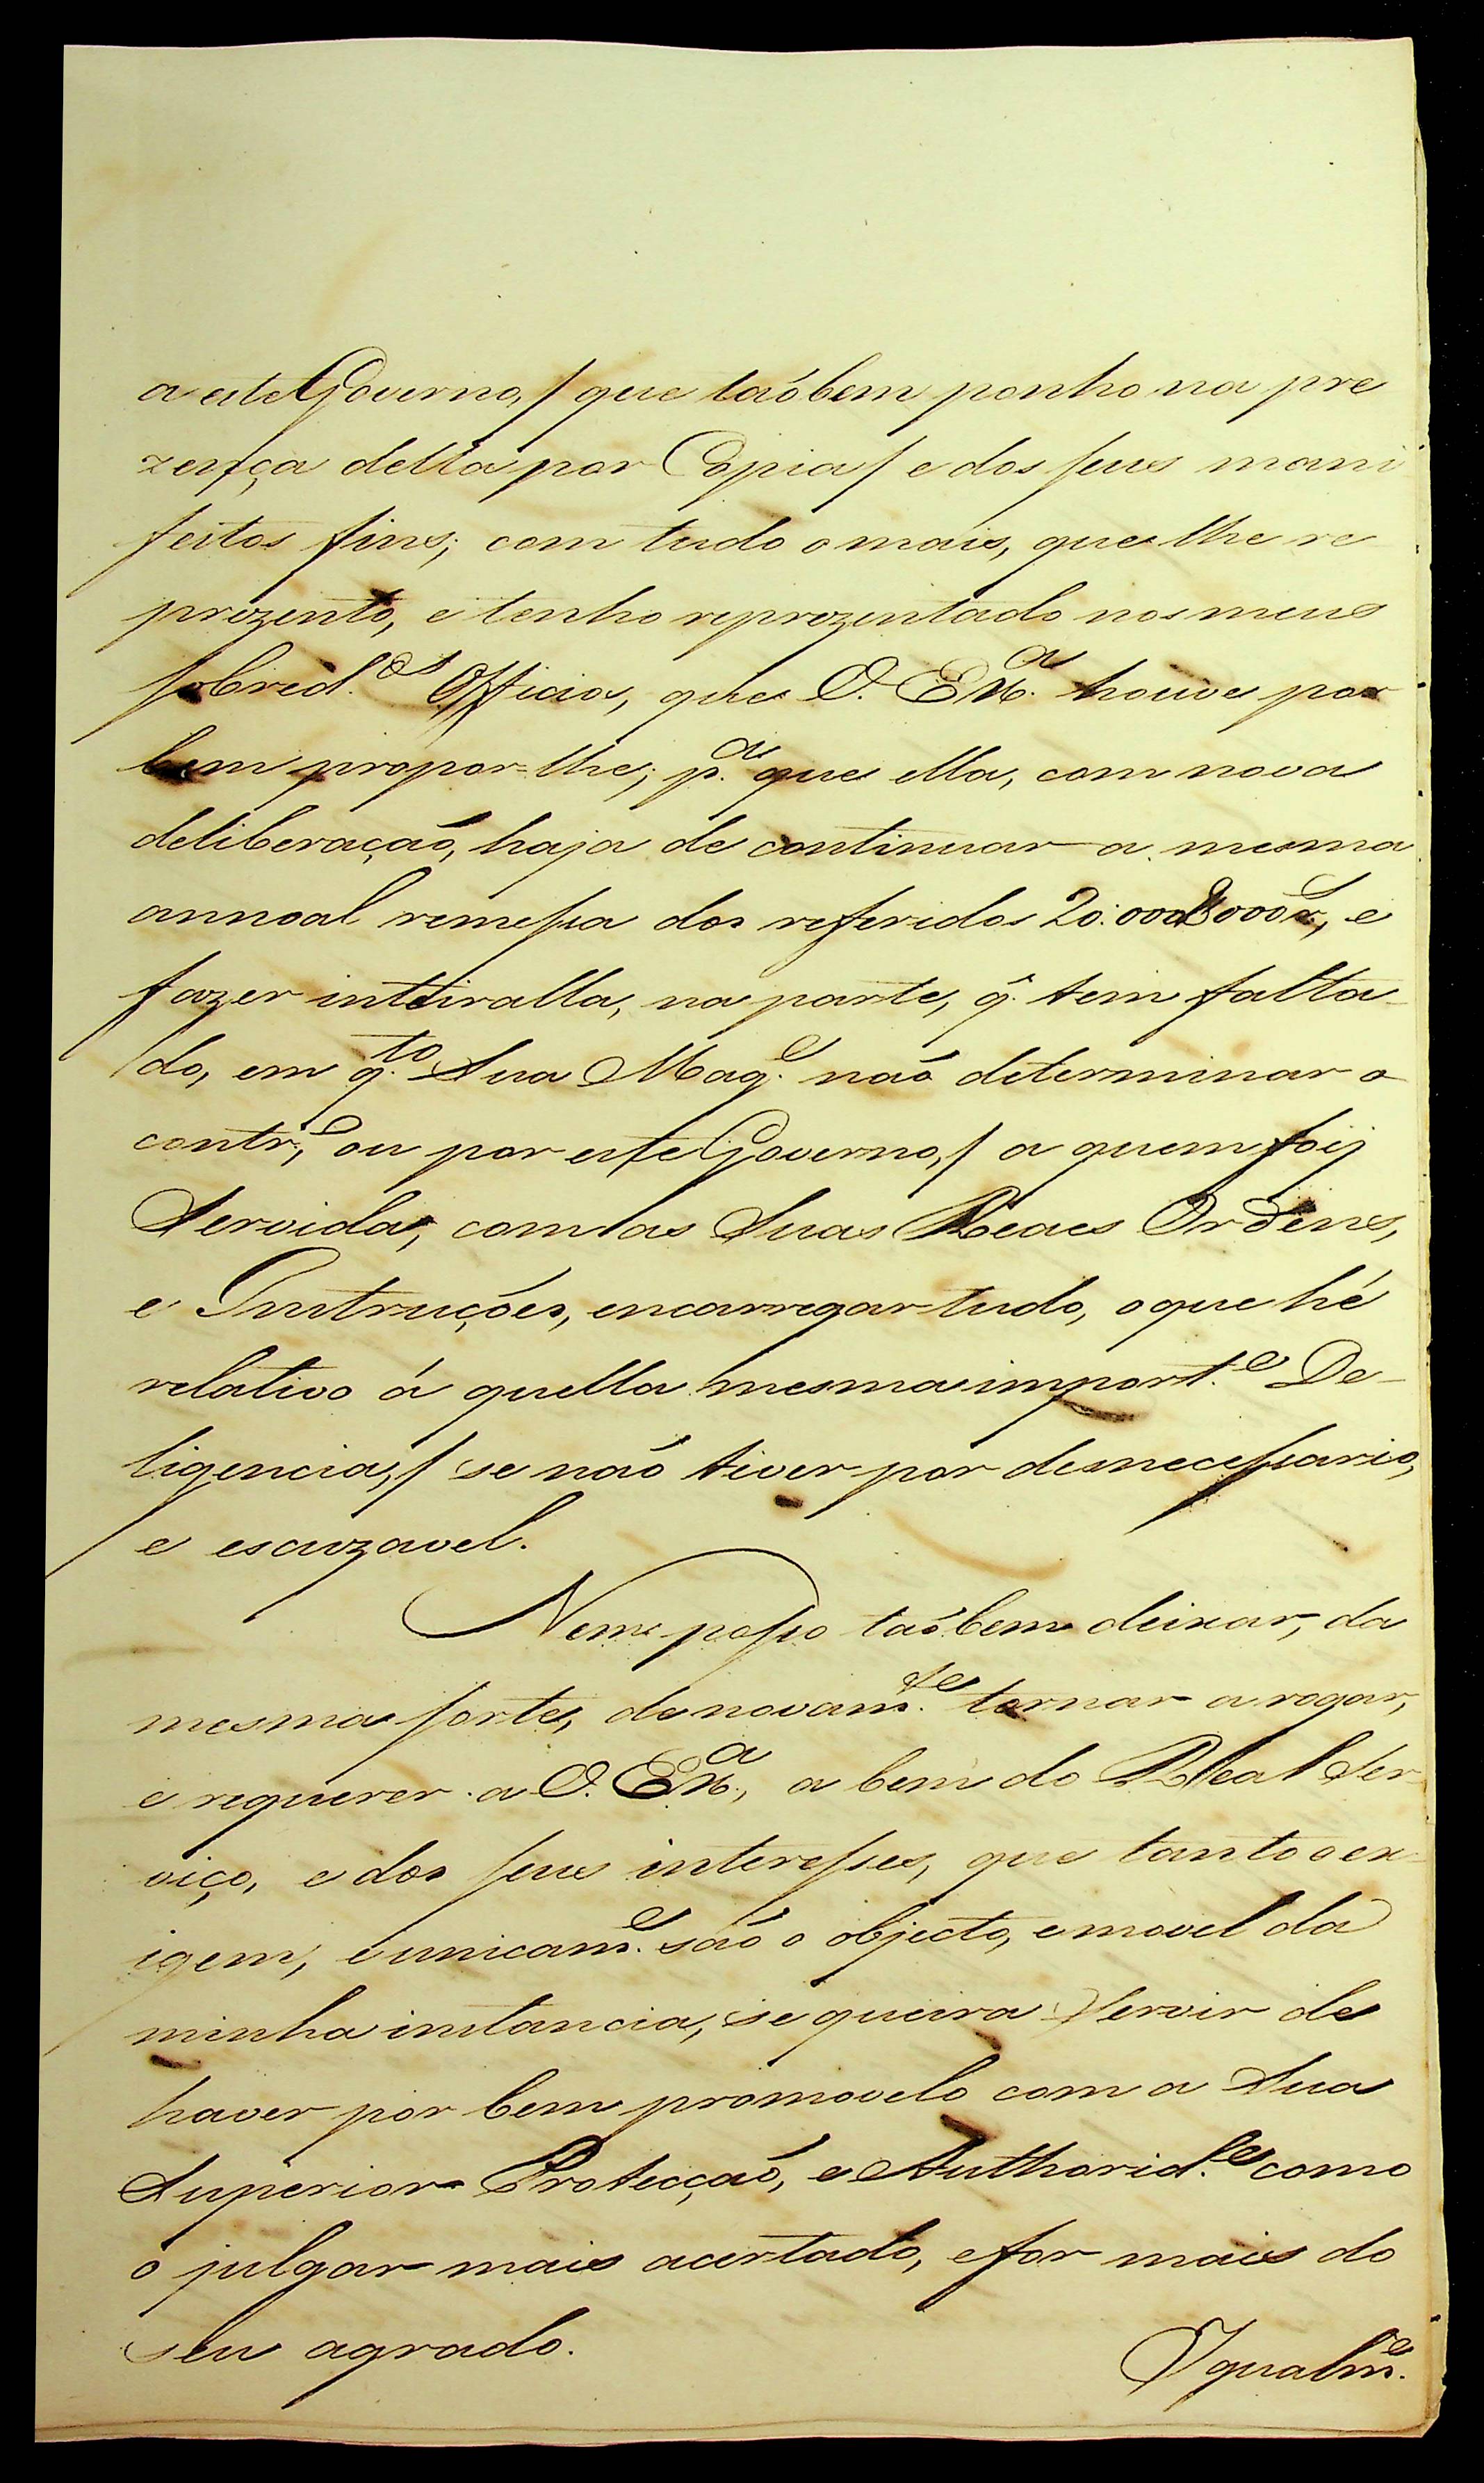 a este Governo,/ que taõbem ponho na pre
zença della por Copia/ e dos seus mani
festos fins; com tudo o mais, que lhe re
prezento, e tenho reprezentado nos meus
sobred.os Officios, que V. Ex.a houve por
bem propor=lhe; p.a que ella, com nova
deliberaçaõ, haja de continuar a mesma
annoal remessa dos referidos 20:000$000 r.s, e
fazer inteiralla, na parte, q̃ tem falta-
do, em q.to Sua Mag.e naõ determinar o
contr.o, ou por este Governo,/ a quem foi
Servida, com as Suas Reaes Ordens,
e Instruções, encarregar tudo, o que hé
relativo á quella mesma import.e De-
ligencia,/ se naõ tiver por desnecessario,
e escuzavel.
Nem posso taõbem deixar, da
mesma sorte, de novam.te tornar a rogar,
e requerer a V. Ex.a, a bem do Real Ser-
viço, e dos seus interesses, que tanto o ex-
igem, e unicam.e saõ o objecto, e movel da
minha instancia, se queira Servir de
haver por bem promovelo com a Sua
Superior Protecçaõ, e Authorid.e como
o julgar mais acertado, e for mais do
seu agrado.
Igualm.e